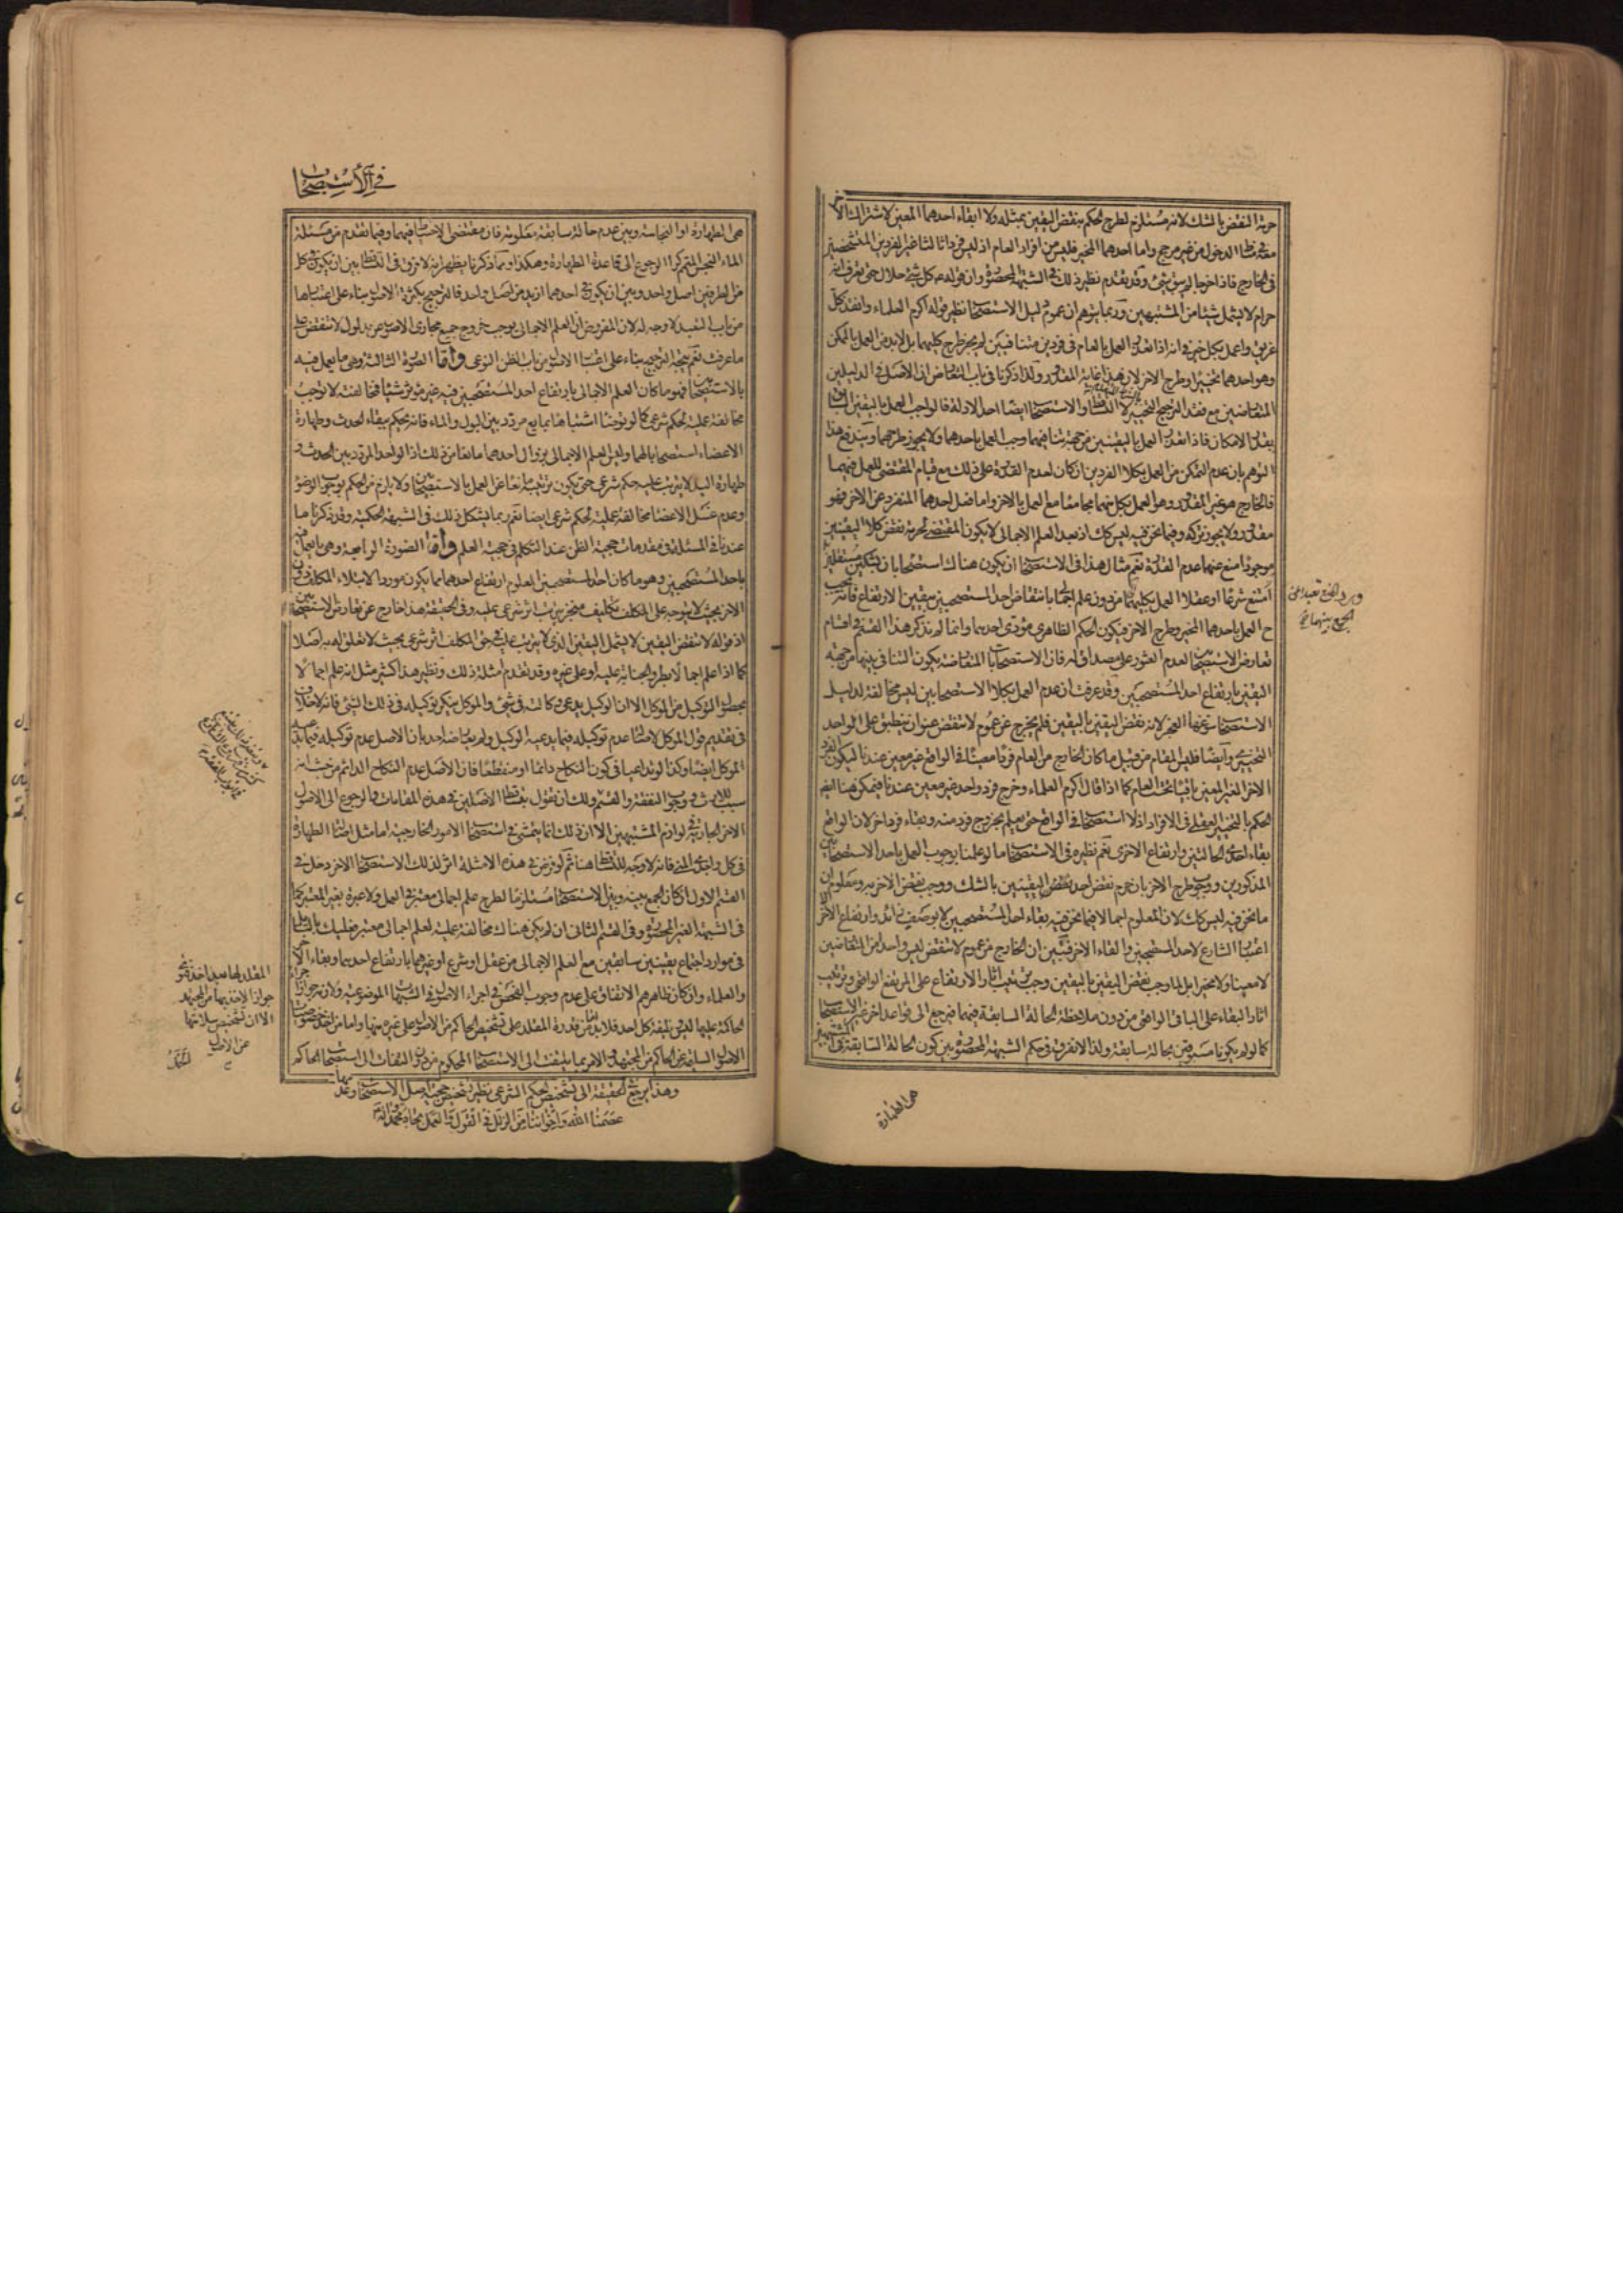 حرمة النقض بالشك لانه مستلزم لطرح الحكم بنقض اليقين بمثله ولا ابقاء احدهما المعين لاشتراك الاخر
معه فى مناط الدخول من غير مرجح واما احدهما المخير فليس من افراد العام اذ ليس فردا ثالثا غير الفردين المتشخصين
فى الخارج فاذا خرجا لم يبق شئ وقد تقدم نظير ذلك فى الشبهة المحصورة وان قوله ع كل شئ حلال حتى تعرف انه
حرام لا يشمل شيئا من المشتبهين وربما يتوهم ان عموم دليل الاستصحاب نظير قوله اكرم العلماء وانقذ كل
غريق واعمل بكل خبر فى انه اذا تعذر العمل بالعام فى فردين متنافيين لم يجز طرح كليهما بل لابد من العمل بالممكن
وهو احدهما تخييرا وطرح الاخر لان هذا غاية المقدور ولذا ذكرنا فى باب التعارض ان الاصل فى الدليلين
المتعارضين مع فقد الترجيح التخيير لا التساقط والاستصحاب ايضا احد الادلة فالواجب العمل باليقين السابق
بقدر الامكان فاذا تعذر العمل باليقينين من جهة تنافيهما وجب العمل باحدهما ولا يجوز طرحهما ويندفع هذا
التوهم بان عدم التمكن من العمل بكلا الفردين ان كان لعدم القدرة على ذلك مع قيام المقتضى للعمل فيهما
فالخارج هو غير المقدور وهو العمل بكل منهما مجامعا مع العمل بالاخر واما فعل احدهما المنفرد عن الاخر فهو
مقدور ولا يجوز تركه وفيما نحن فيه ليس كك اذ بعد العلم الاجمالى لا يكون المقتضى لحرمة نقض كلا اليقينين
موجودا منع عنهما عدم القدرة نعم مثال هذا فى الاستصحاب ان يكون هناك استصحابان بشكين مستقلين
امتنع شرعا او عقلا العمل بكليهما من دون علم اجمالى بانتقاض احد المستصحبين بيقين الارتفاع فانه يجب
ح العمل باحدهما المخير وطرح الاخر فيكون الحكم الظاهرى مؤدى احدهما وانما لم نذكر هذا القسم فى اقسام
تعارض الاستصحابين لعدم العثور على مصداق له فان الاستصحابات المتعارضة يكون التنافى بينها من جهة
اليقين بارتفاع احد المستصحبين وقد عرفت ان عدم العمل بكلا الاستصحابين ليس مخالفة لدليل
الاستصحاب سوغها العجز لانه نقض اليقين باليقين فلم يخرج عن عموم لا تنقض عنوان ينطبق على الواحد
التخييرى وايضا فليس المقام من قبيل ما كان الخارج من العام فردا معينا فى الواقع غير معين عندنا ليكون الفرد
الاخر الغير المعين باقيا تحت العام كما اذا قال اكرم العلماء وخرج فرد واحد غير معين عندنا فيمكن هنا ايضا
الحكم بالتخيير العقلى فى الافراد اذ لا استصحاب فى الواقع حتى يعلم بخروج فرد منه وبقاء فرد اخر لان الواقع
بقاء احدى الحالتين وارتفاع الاخرى نعم نظيره فى الاستصحاب ما لو علمنا بوجوب العمل باحد الاستصحابين
المذكورين ووجوب طرح الاخر بان حرم نقض احد اليقينين بالشك ووجب نقض الاخر به ومعلوم ان
ما نحن فيه ليس كك لان المعلوم اجمالا فيما نحن فيه بقاء احد المستصحبين لا بوصف زائد وارتفاع الاخر لا
اعتبار الشارع لاحد المستصحبين والغاء الاخر فتبين ان الخارج من عموم لا تنقض ليس واحدا من المتعارضين
لا معينا ولا مخيرا بل لما وجب نقض اليقين باليقين وجب ترتيب اثار الارتفاع على المرتفع الواقعى وترتيب
اثار البقاء على الباقى الواقعى من دون ملاحظة الحالة السابقة فيهما فيرجع الى قواعد اخر غير الاستصحاب
كما لو لم يكونا مسبوقين بحالة سابقة ولذا لا نفرق فى حكم الشبهة المحصورة بين كون الحالة السابقة فى المشتبهين
هى الطهارة
فى الاستصحاب
هى الطهارة او النجاسة وبين عدم حالة سابقة معلومة فان مقتضى الاحتياط فيهما وفيما تقدم من مسئلة
الماء النجس المتمم كرا الرجوع الى قاعدة الطهارة وهكذا ومما ذكرنا يظهر انه لا فرق فى التساقط بين ان يكون فى كل
من الطرفين اصل واحد وبين ان يكون فى احدهما ازيد من اصل واحد فالترجيح بكثرة الاصول بناء على اعتبارها
من باب التعبد لا وجه له لان المفروض ان العلم الاجمالى يوجب خروج جميع مجارى الاصول عن مدلول لا تنقض على
ما عرفت نعم يتجه الترجيح بناء على اعتبار الاصول من باب الظن النوعى واما الصورة الثالثة وهى ما يعمل فيه
بالاستصحابين فهو ما كان العلم الاجمالى بارتفاع احد المستصحبين فيه غير مؤثر شيئا فمخالفته لا توجب
مخالفة عملية لحكم شرعى كما لو توضأ اشتباها بمايع مردد بين البول والماء فانه يحكم ببقاء الحدث وطهارة
الاعضاء استصحابا لهما وليس العلم الاجمالى بزوال احدهما مانعا من ذلك اذ الواحد المردد بين الحدث و
طهارة اليد لا يترتب عليه حكم شرعى حتى يكون ترتيبه مانعا عن العمل بالاستصحابين ولا يلزم من الحكم بوجوب الوضوء
وعدم غسل الاعضاء مخالفة عملية لحكم شرعى ايضا نعم ربما يشكل ذلك فى الشبهة الحكمية وقد ذكرنا ما
عندنا فى المسئلة فى مقدمات حجية الظن عند التكلم فى حجية العلم واما الصورة الرابعة وهى ما يعمل فيه
باحد المستصحبين وهو ما كان احد المستصحبين المعلوم ارتفاع احدهما مما يكون موردا لابتلاء المكلف دون
الاخر بحيث لا يتوجه على المكلف تكليف منجز يترتب اثر شرعى عليه وفى الحقيقة هذا خارج عن تعارض الاستصحابين
اذ قوله لا تنقض اليقين لا يشمل اليقين الذى لا يترتب عليه فى حق المكلف اثر شرعى بحيث لا تعلق له به اصلا
كما اذا علم اجمالا بطرو الجنابة عليه او على غيره وقد تقدم امثلة ذلك ونظير هذا كثير مثل انه علم اجمالا
بحصول التوكيل من الموكل الا ان الوكيل يدعى وكالته فى شئ والموكل ينكر توكيله فى ذلك الشئ فانه لا خلاف
فى تقديم قول الموكل لاصالة عدم توكيله فيما يدعيه الوكيل ولم يعارضه احد بان الاصل عدم توكيله فيما يدعيه
الموكل ايضا وكذا لو تداعيا فى كون النكاح دائما او منقطعا فان الاصل عدم النكاح الدائم من حيث انه
سبب للارث ووجوب النفقة والقسم ولك ان تقول بتساقط الاصلين فى هذه المقامات والرجوع الى الاصول
الاخر الجارية فى لوازم المشتبهين الا ان ذلك انما يتمشى فى استصحاب الامور الخارجية اما مثل اصالة الطهارة
فى كل واحد من المنى فانه لا وجه للتساقط هنا ثم لو فرض فى هذه الامثلة اثر لذلك الاستصحاب الاخر دخل فى
القسم الاول ان كان الجمع بينه وبين الاستصحاب مستلزما لطرح علم اجمالى معتبر فى العمل ولا عبرة بغير المعتبر كما
فى الشبهة الغير المحصورة وفى القسم الثانى ان لم يكن هناك مخالفة عملية لعلم اجمالى معتبر فعليك بالتأمل
فى موارد اجتماع يقينين سابقين مع العلم الاجمالى من عقل او شرع او غيرهما بارتفاع احدهما وبقاء الاخر
والعلماء وان كان ظاهرهم الاتفاق على عدم وجوب الفحص فى اجراء الاصول فى الشبهات الموضوعية ولازمه جواز اجراء
المقلد لها بعد اخذ فتوى
جواز الاخذ بها من المجتهد
الا ان تشخيص سلامتها
عن الاصول
الحاكمة عليها ليس وظيفة كل احد فلابد اما من قدرة المقلد على تشخيص الحاكم من الاصول على غيره منها واما من اخذ خصوصيات
الاصول السليمة عن الحاكم من المجتهد والا فربما يلتفت الى الاستصحاب المحكوم من دون التفات الى استصحاب الحاكم
وهذا يرجع فى الحقيقة الى تشخيص الحكم الشرعى نظير تشخيص حجية اصل الاستصحاب وعدمها
عصمنا الله واخواننا من الزلل فى القول والعمل بجاه محمد وآله